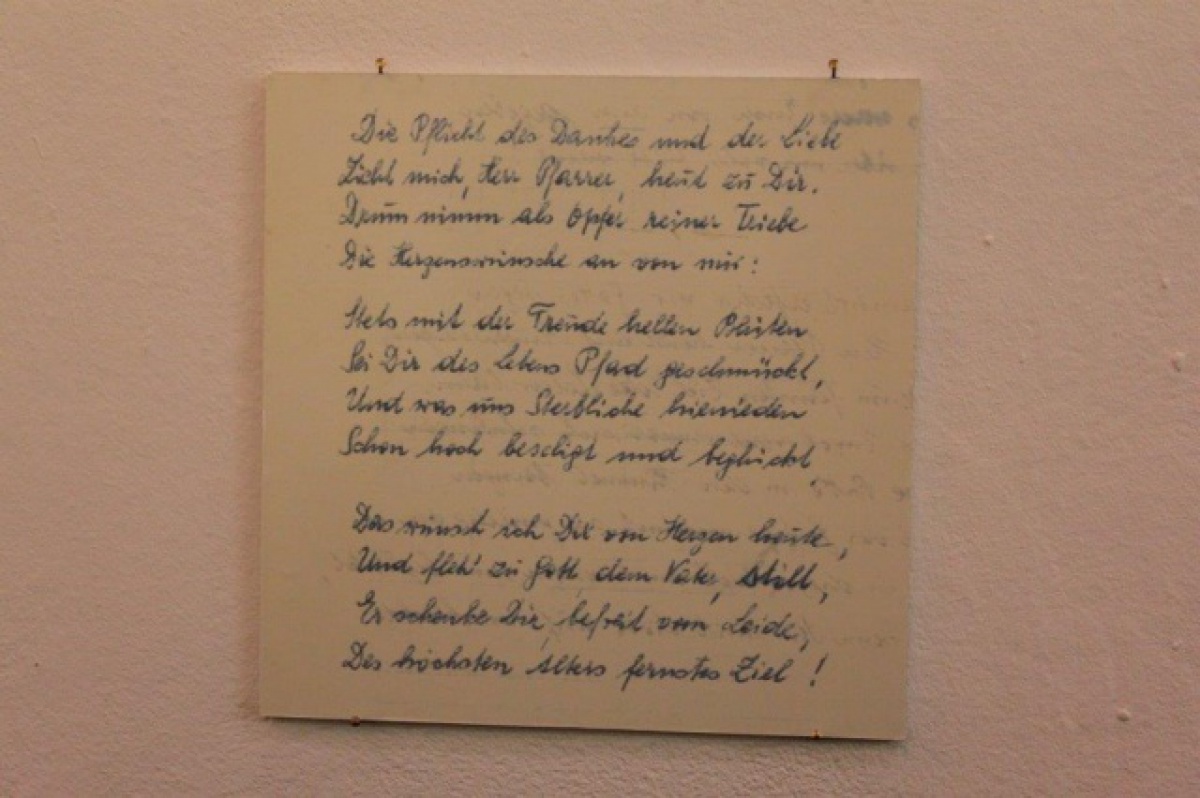 Die Pflicht des Dankes und der Liebe
Zieht mich, Herr Pfarrer, heut zu Dir.
Drum nimm als Opfer reiner Triebe
Die Herzenswünsche an von mir:
Stets mit der Freude hellen Blüten
Sei Dir des Lebens Pfad geschmückt,
Und was uns Sterbliche hienieden
Schon hoch beseligt und beglückt,
Das wünsch ich Dir von Herzen heute,
Und fleh' zu Gott, dem Vater, still,
Er schenke Dir, befreit vom Leide,
Des höchsten Alters fernstes Ziel!